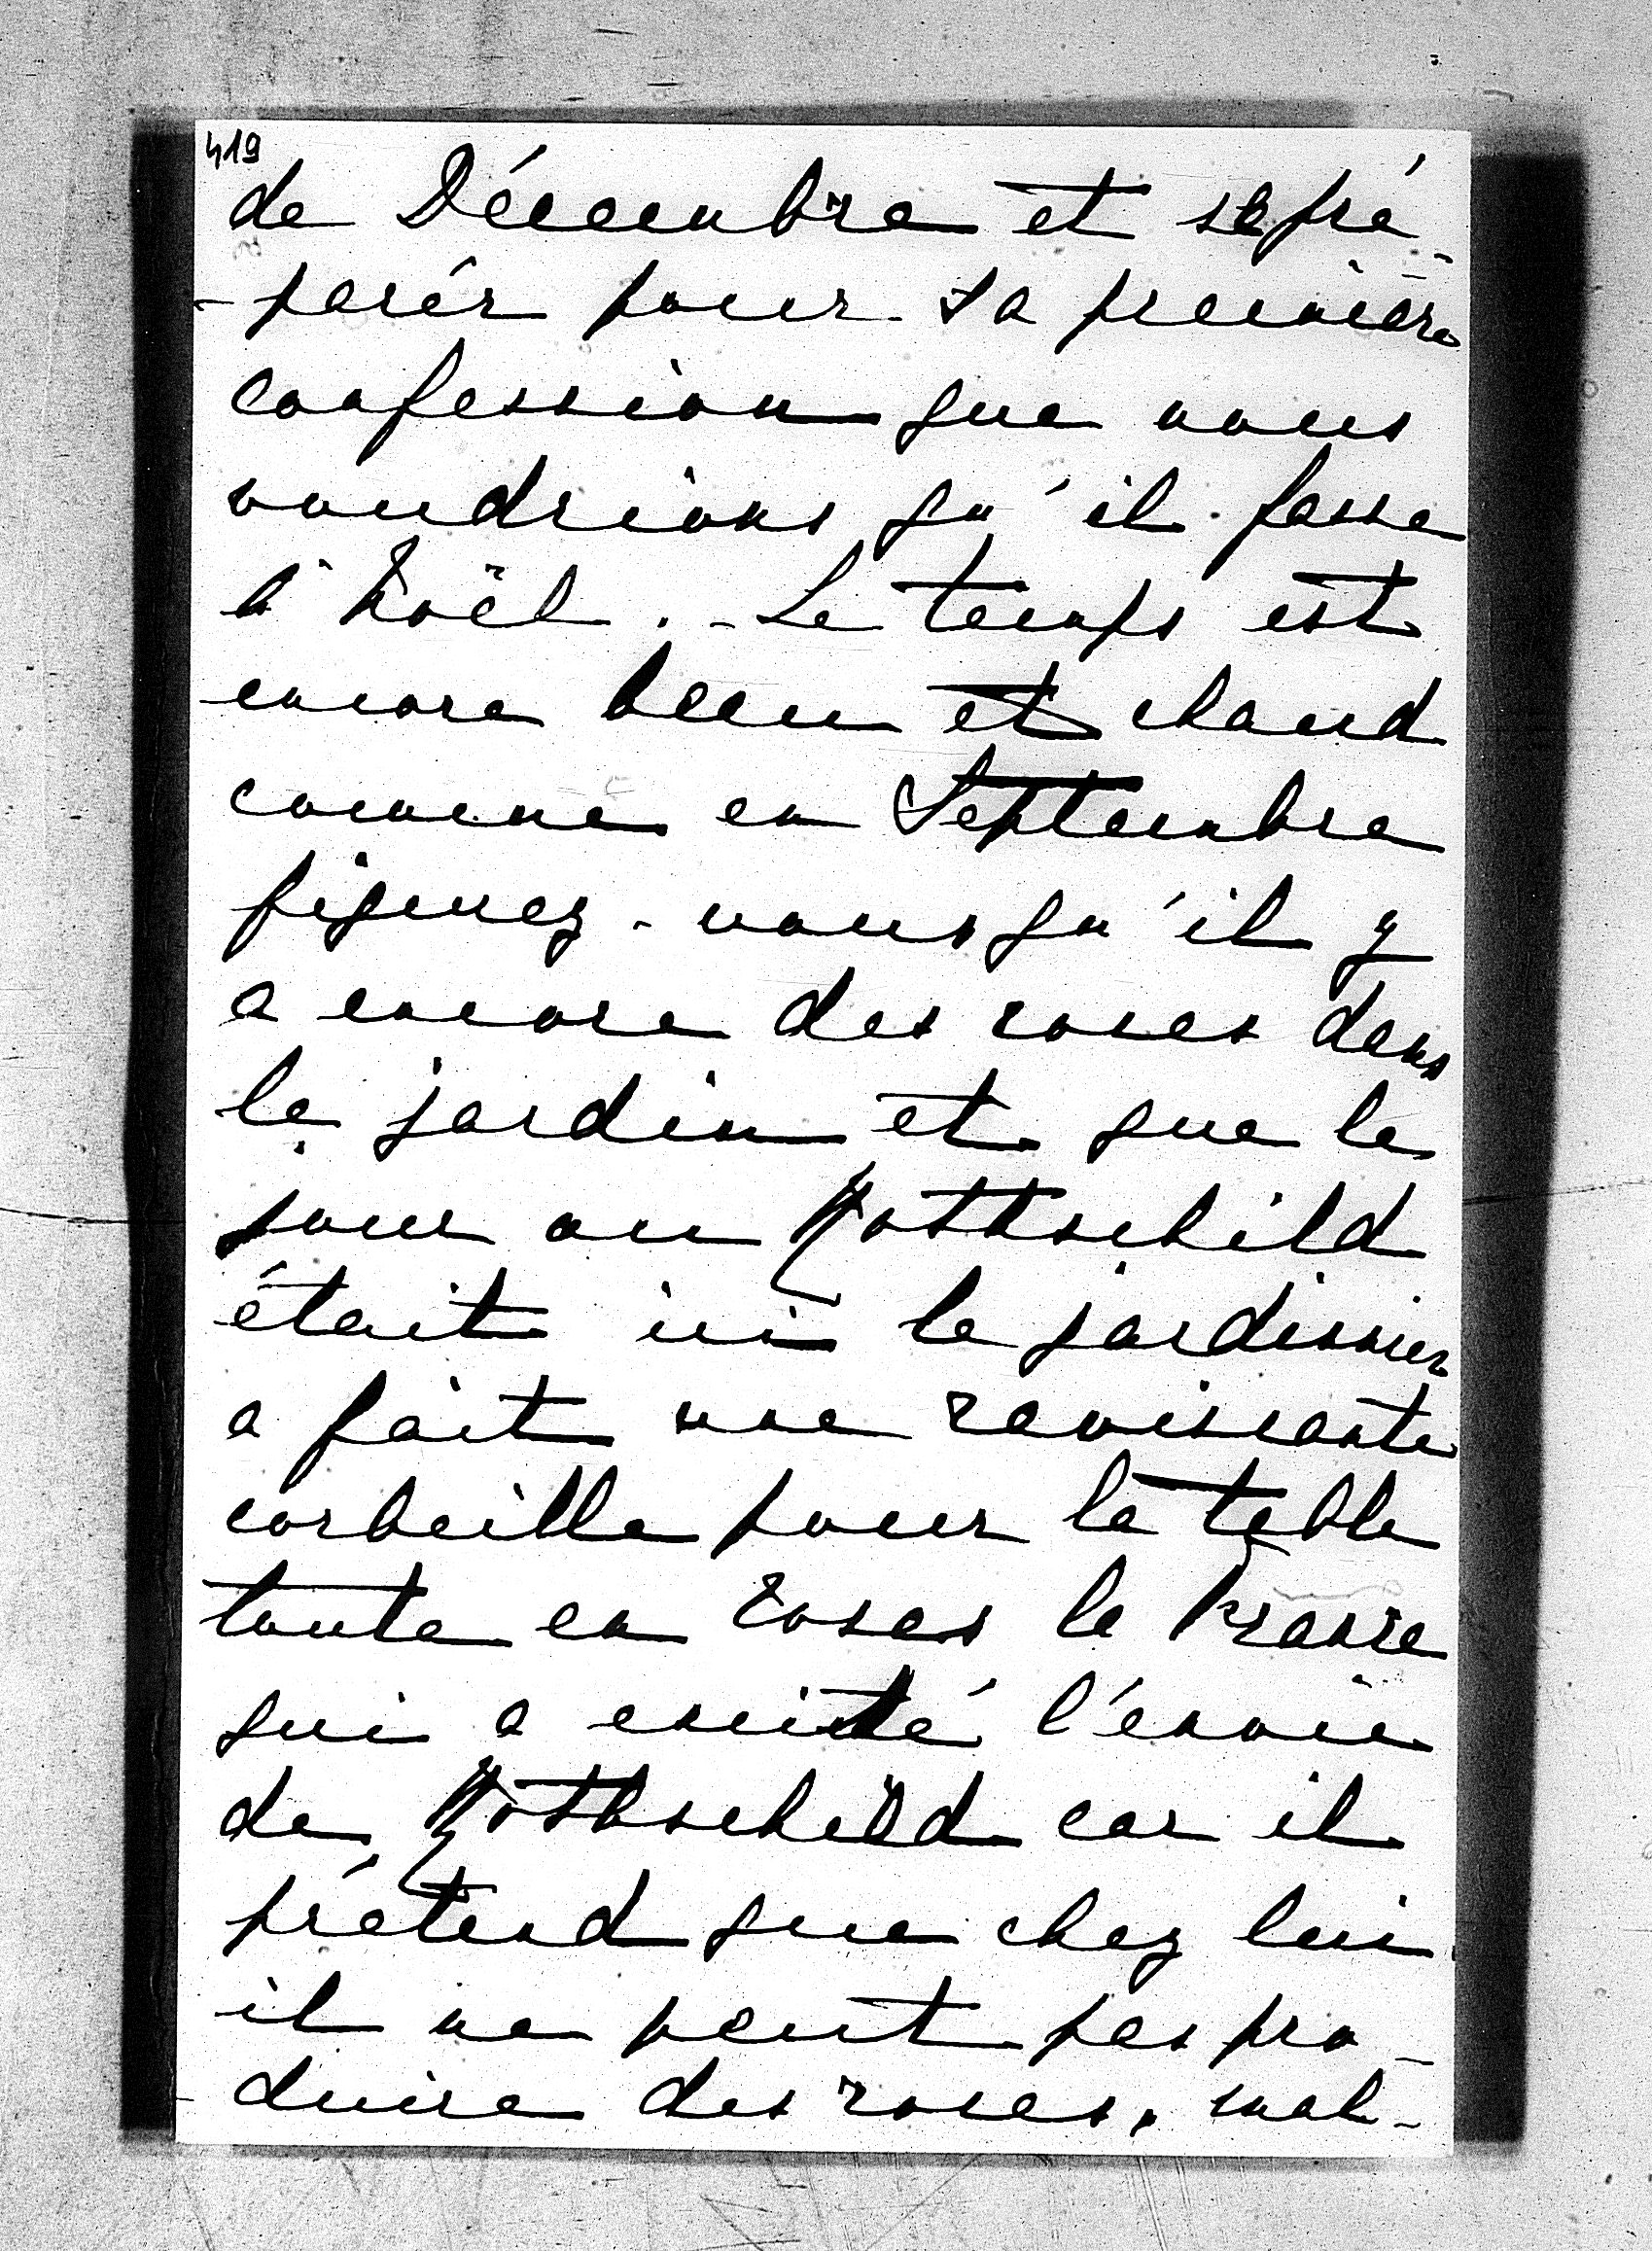 419
de Décembre et se pré-
-parér pour sa première
confession que nous
voudrions qu'il fasse
à Noël. - Le temps est
encore beau et chaud
comme en Septembre
figurez-vous qu'il y
a encore des roses dans
le jardin et que le
jour ou Rothschild
était ici le jardinier
a fait une ravissante
corbeille pour la table
toute en roses la France
qui a excité l'envie
de Rothschild car il
prétend que chez lui
il ne peut pas pro-
-duire des roses, mal-